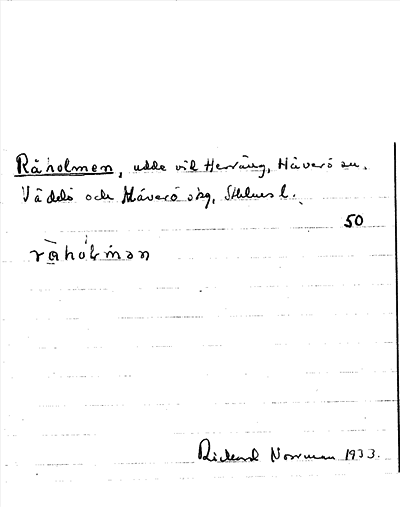 Råholmen, udde vid Herräng, Häverö sn.
Väddö och Häverö skg, Sthlms l.
50
ràhólmən
Rickard Norrman 1933.